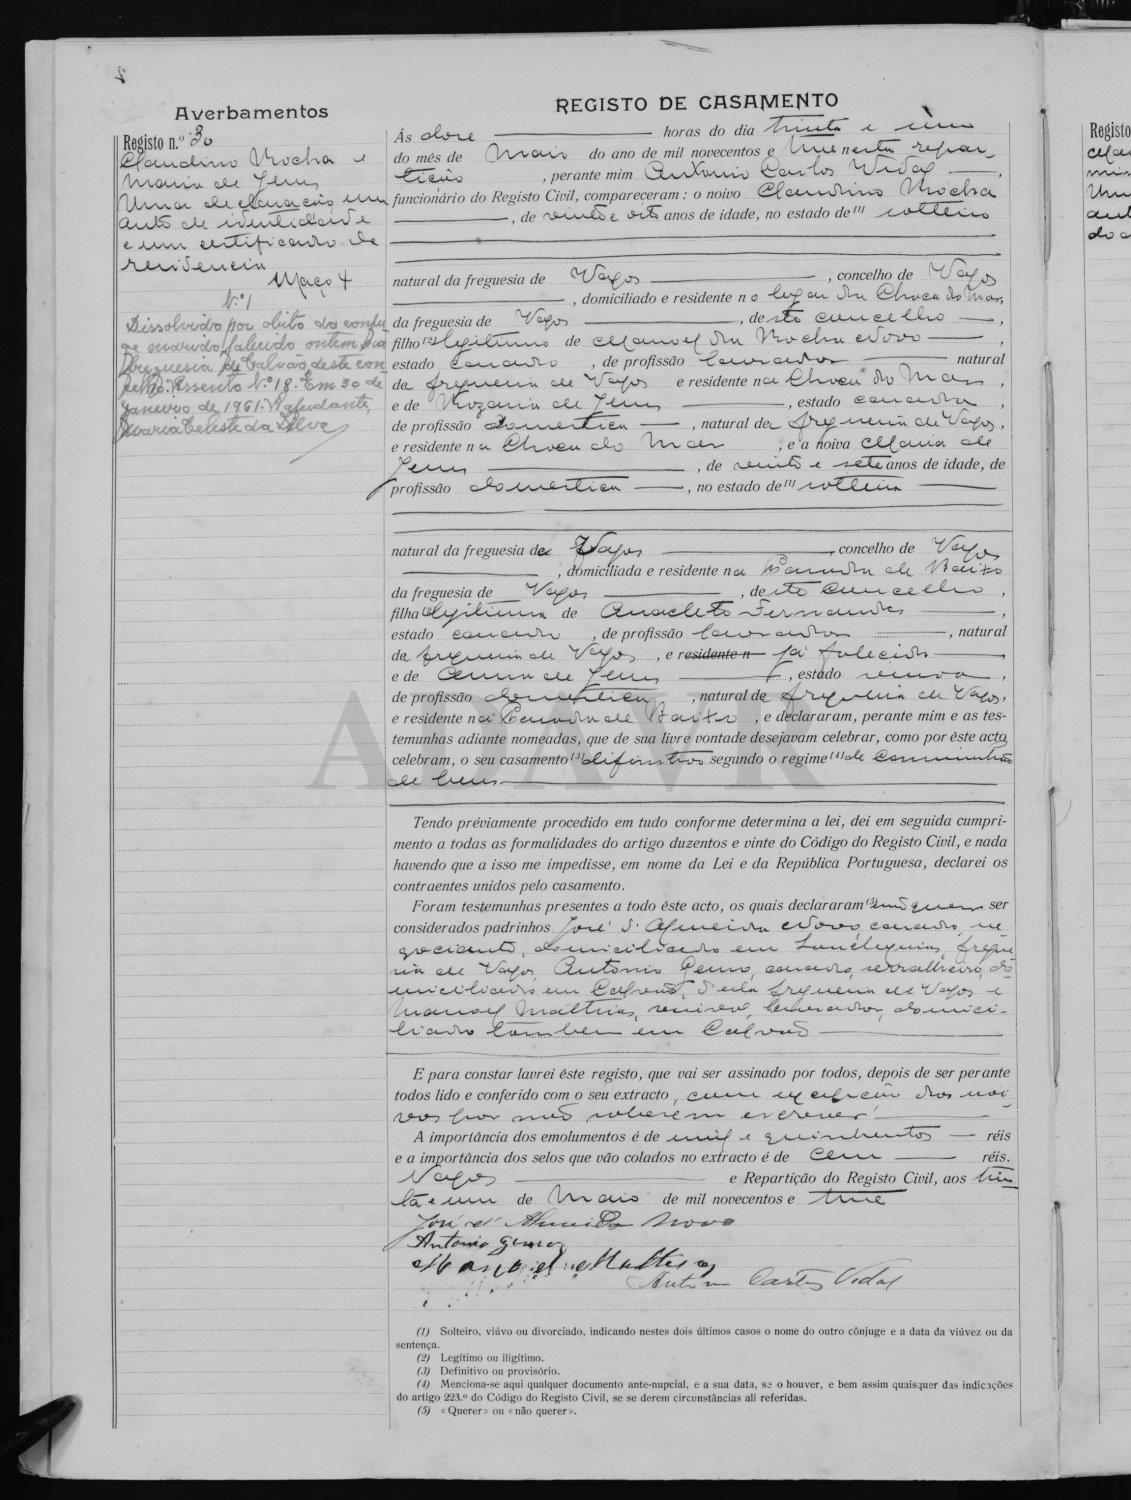 Averbamentos
Registo n.º 30
Claudino Rocha e
Maria de Jesus
Uma declaração um
auto de identidade
e um certificado de
residencia
Maço 4
N.º 1
Dissolvido por obito do conju
ge marido falecido ontem na
freguesia de Calvão, deste con
celho. Assento N.º 18. Em 30 de
Janeiro de 1961. A ajudante,
Maria Celeste da Silva
REGISTO DE CASAMENTO
Às doze horas do dia trinta e um
do mês de Maio do ano de mil novecentos e treze nesta repar-
tição, perante mim Antonio Carlos Vidal,
funcionário do Registo Civil, compareceram: o noivo Claudino Rocha
, de vinte e oito anos de idade, no estado de (1) solteiro
natural da freguesia de Vagos, concelho de Vagos
, domiciliado e residente no logar da Choca do Mar,
da freguesia de Vagos, deste concelho,
filho (2) legitimo de Manoel da Rocha Novo,
estado casado, de profissão lavrador natural
da freguesia de Vagos e residente na Choca do Mar,
e de Rozaria de Jesus, estado casada,
de profissão domestica, natural da freguesia de Vagos,
e residente na Choca do Mar, e a noiva Maria de
Jesus, de vinte e sete anos de idade, de
profissão domestica, no estado de (1) solteira
natural da freguesia de Vagos, concelho de Vagos
, domiciliada e residente na Parada de Baixo
da freguesia de Vagos, deste concelho,
filha (2) legitima de Anacleto Fernandes,
estado casado, de profissão lavrador, natural
da freguesia de Vagos, e residente n já falecido
e de Anna de Jesus, estado viuva,
de profissão domestica, natural da freguesia de Vagos,
e residente na Parada de Baixo, e declararam, perante mim e as tes-
temunhas adiante nomeadas, que de sua livre vontade desejavam celebrar, como por êste acto
celebram, o seu casamento (3) difinitivo segundo o regime (4) de Communhão
de bens
Tendo préviamente procedido em tudo conforme determina a lei, dei em seguida cumpri-
mento a todas as formalidades do artigo duzentos e vinte do Código do Registo Civil, e nada
havendo que a isso me impedisse, em nome da Lei e da República Portuguesa, declarei os
contraentes unidos pelo casamento.
Foram testemunhas presentes a todo êste acto, os quais declararam (5) não querer ser
considerados padrinhos José d'Almeida Novo, casado, ne
gociante, domiciliado em Sanchequias, fregue
sia de Vagos, Antonio Genro, casado, serralheiro, do
miciliado em Calvão, desta freguesia de Vagos e
Manoel Mathias, viuvo, lavrador, domici-
liado tambem em Calvão
E para constar lavrei êste registo, que vai ser assinado por todos, depois de ser perante
todos lido e conferido com o seu extracto, com excepção dos noi-
vos por não saberem escrever
A importância dos emolumentos é de mil e quinhentos réis
e a importância dos selos que vão colados no extracto é de cem réis.
Vagos e Repartição do Registo Civil, aos trin
ta e um de Maio de mil novecentos e treze
José d'Almeida Novo
Antonio Genro
Manoel Mathias
Antonio Carlos Vidal
(1) Solteiro, viúvo ou divorciado, indicando nestes dois últimos casos o nome do outro cônjuge e a data da viúvez ou da
sentença.
(2) Legítimo ou iligítimo.
(3) Definitivo ou provisório.
(4) Menciona-se aqui qualquer documento ante-nupcial, e a sua data, se o houver, e bem assim quaisquer das indicações
do artigo 223.º do Código do Registo Civil, se se derem circunstâncias ali referidas.
(5) «Querer» ou «não querer».
ADAVR
Registo